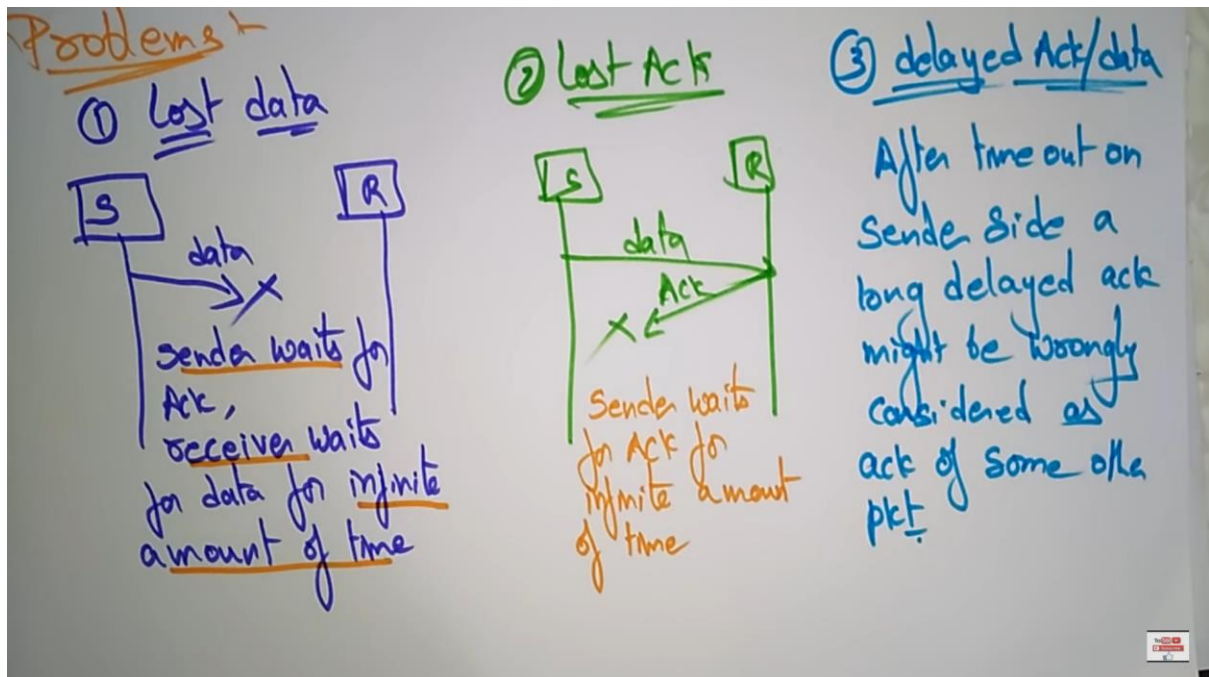 Problems
① Lost data
S
R
data
sender waits for
Ack,
receiver waits
for data for infinite
amount of time
② Lost Ack
S
R
data
Ack
Sender waits
for Ack for
infinite amount
of time
③ delayed Ack/data
After time out on
sender side a
long delayed ack
might be wrongly
considered as
ack of some other
pkt